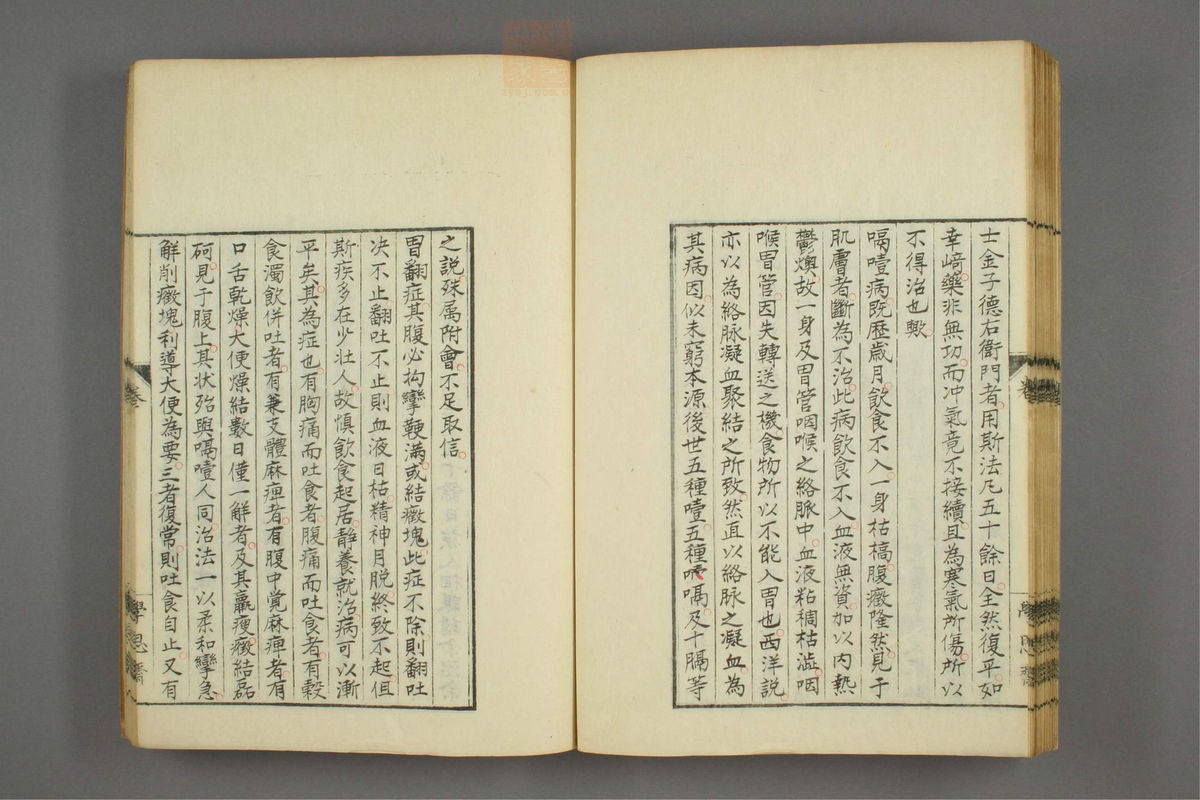 士金子德右衛門者用斯法凡五十餘日全然復平如
幸﨑藥非無功而沖氣竟不接續且為寒氣所傷所以
不得治也歟
嗝噎病既歴歲月飲食不入一身枯槁腹癥隆然見于
肌膚者斷為不治此病飲食不入血液無資加以内熱
鬱燠故一身及胃管咽喉之絡脈中血液粘稠枯澁咽
喉胃管因失轉送之機食物所以不能入胃也西洋說
亦以為絡脉凝血聚結之所致然直以絡脉之凝血為
其病因似未窮本源後世五種噎五種嗝及十膈等
之説殊属附會不足取信
胃翻症其腹必拘攣鞕滿或結癥塊此症不除則翻吐
决不止翻吐不止則血液日枯精神月脱終致不起但
斯疾多在少壮人故慎飲食起居静養就治病可以漸
平矣其為症也有胸痛而吐食者腹痛而吐食者有穀
食濁飲併吐者有兼支體麻痺者有腹中覚麻痺者有
口舌乾燥大便燥結數日僅一解者及其羸瘦癥結磊
砢見于腹上其状殆與嗝噎人同治法一以柔和攣急
解削癥塊利導大便為要三者復常則吐食自止又有
卷
學思齋
八